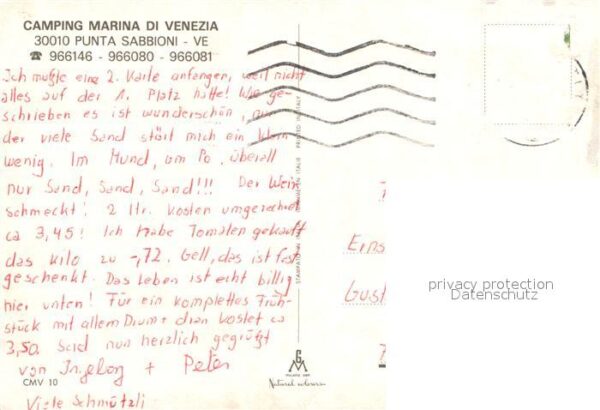 CAMPING MARINA DI VENEZIA
30010 PUNTA SABBIONI - VE
☎ 966146 - 966080 - 966081
Ich mußte eine 2. Karte anfangen, weil nicht
alles auf der 1. Platz hatte! Wie ge-
schrieben es ist wunderschön, nur
der viele Sand stört mich ein klein
wenig. Im Mund, am Po, überall
nur Sand, Sand, Sand!!! Der Wein
schmeckt! 2 ltr. kosten umgerechnet
ca 3,45! Ich habe Tomaten gekauft
das kilo zu -,72. Gell, das ist fast
geschenkt. Das Leben ist echt billig
hier unten! Für ein komplettes Früh-
stück mit allem Drum + dran kostet ca
3,50. Seid nun herzlich gegrüßt
von Ingeborg + Peter
CMV 10
Viele Schmützli
PRINTED IN ITALY
Natural colour
G
M
Eins
Gust
7
privacy protection
Datenschutz